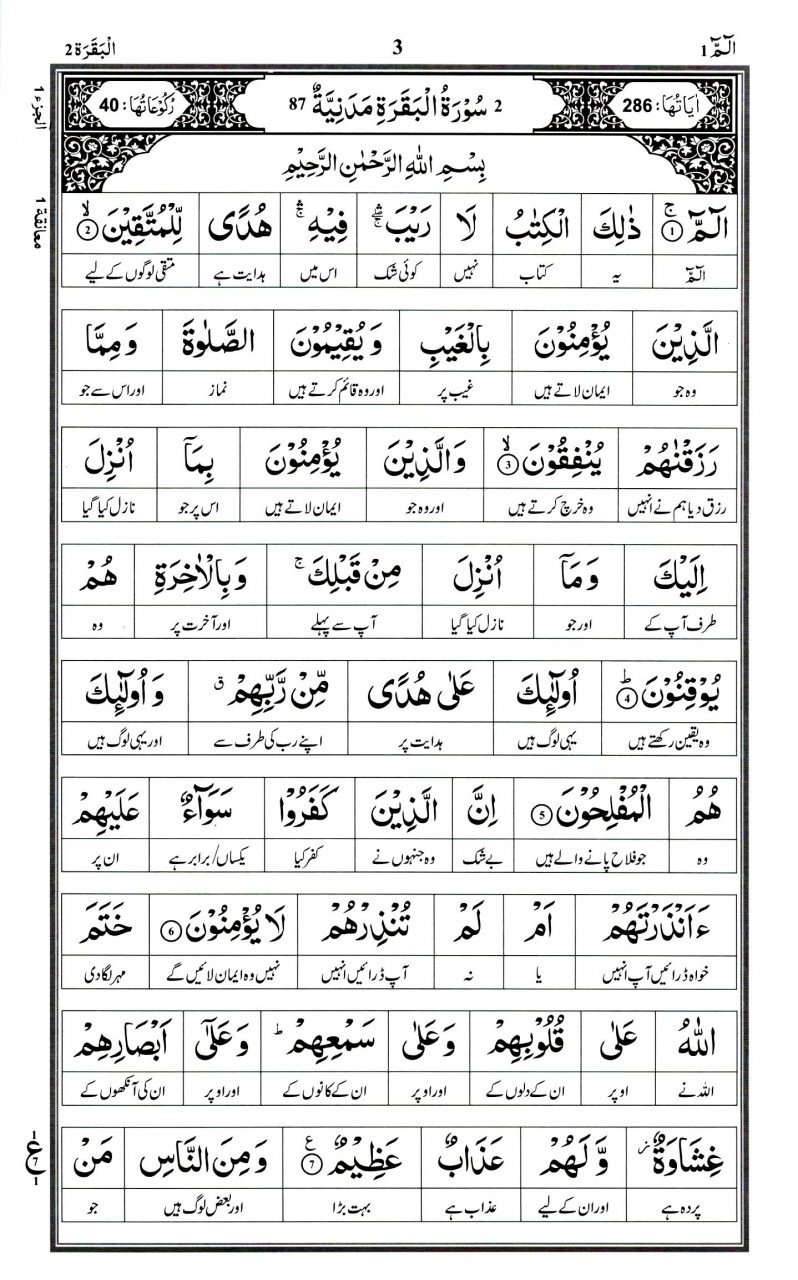 الٓمّٓ 1 3 اَلْبَقَرَة 2
اٰیَاتُهَا: 286 2 سُوْرَةُ الْبَقَرَةِ مَدَنِيَّةٌ 87 رُكُوْعَاتُهَا: 40
الجزء 1
بِسْمِ اللّٰهِ الرَّحْمٰنِ الرَّحِيْمِ
معانقة 1
الٓمّٓ ۚ ① ذٰلِكَ الْكِتٰبُ لَا رَيْبَ ۛۚ فِيْهِ ۛۚ هُدًى لِّلْمُتَّقِيْنَ ۙ ②
الٓمّٓ یہ کتاب نہیں کوئی شک اس میں ہدایت ہے متقی لوگوں کے لیے
الَّذِيْنَ يُؤْمِنُوْنَ بِالْغَيْبِ وَيُقِيْمُوْنَ الصَّلٰوةَ وَمِمَّا
وہ جو ایمان لاتے ہیں غیب پر اور وہ قائم کرتے ہیں نماز اور اس سے جو
رَزَقْنٰهُمْ يُنْفِقُوْنَ ۙ ③ وَالَّذِيْنَ يُؤْمِنُوْنَ بِمَاۤ اُنْزِلَ
رزق دیا ہم نے انہیں وہ خرچ کرتے ہیں اور وہ جو ایمان لاتے ہیں اس پر جو نازل کیا گیا
اِلَيْكَ وَمَاۤ اُنْزِلَ مِنْ قَبْلِكَ ۚ وَبِالْاٰخِرَةِ هُمْ
طرف آپ کے اور جو نازل کیا گیا آپ سے پہلے اور آخرت پر وہ
يُوْقِنُوْنَ ؕ ④ اُولٰٓئِكَ عَلٰى هُدًى مِّنْ رَّبِّهِمْ ۗ وَاُولٰٓئِكَ
وہ یقین رکھتے ہیں یہی لوگ ہیں ہدایت پر اپنے رب کی طرف سے اور یہی لوگ ہیں
هُمُ الْمُفْلِحُوْنَ ⑤ اِنَّ الَّذِيْنَ كَفَرُوْا سَوَآءٌ عَلَيْهِمْ
وہ جو فلاح پانے والے ہیں بے شک وہ جنہوں نے کفر کیا یکساں/برابر ہے ان پر
ءَاَنْذَرْتَهُمْ اَمْ لَمْ تُنْذِرْهُمْ لَا يُؤْمِنُوْنَ ⑥ خَتَمَ
خواہ ڈرائیں آپ انہیں یا نہ آپ ڈرائیں انہیں نہیں وہ ایمان لائیں گے مہر لگا دی
اللّٰهُ عَلٰى قُلُوْبِهِمْ وَعَلٰى سَمْعِهِمْ ؕ وَعَلٰٓى اَبْصَارِهِمْ
اللہ نے اوپر ان کے دلوں کے اور اوپر ان کے کانوں کے اور اوپر ان کی آنکھوں کے
غِشَاوَةٌ ز وَّلَهُمْ عَذَابٌ عَظِيْمٌ ع ⑦ وَمِنَ النَّاسِ مَنْ
پردہ ہے اور ان کے لیے عذاب ہے بہت بڑا اور بعض لوگ ہیں جو
1 ع 7 1